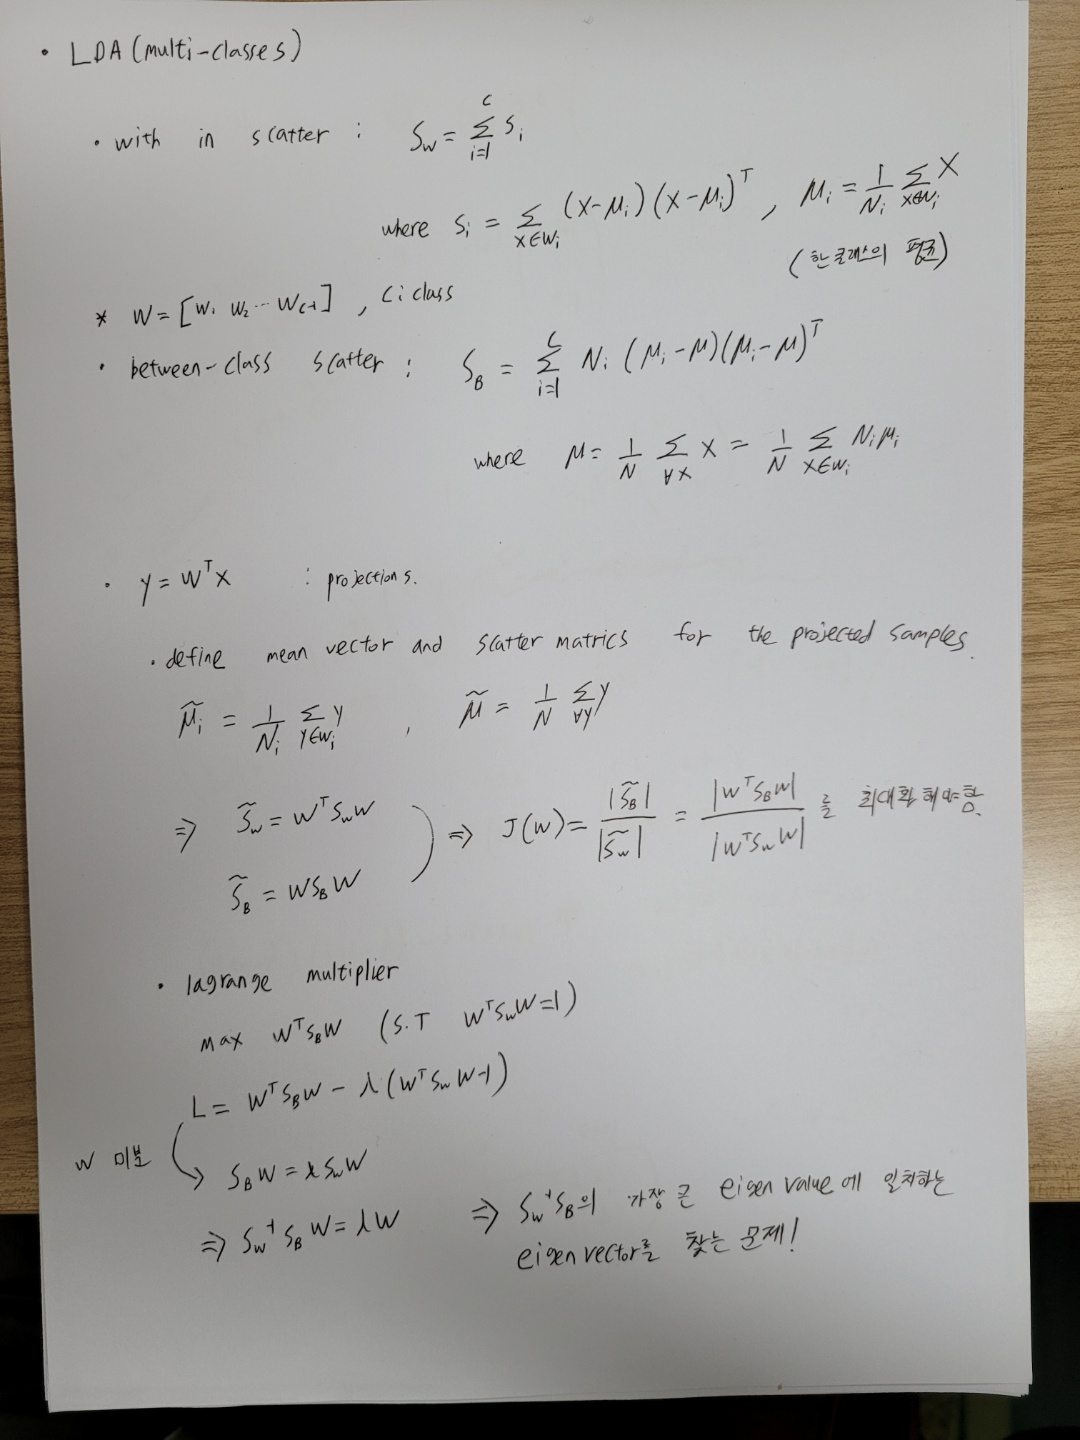 • LDA (multi-classes)
• with in scatter : S_W = Σ_{i=1}^{C} S_i
where S_i = Σ_{x∈W_i} (x-μ_i)(x-μ_i)^T , μ_i = 1/N_i Σ_{x∈W_i} x
(한 클래스의 평균)
* W = [W_1 W_2 ... W_{C-1}] , C: class
• between-class scatter : S_B = Σ_{i=1}^{C} N_i (μ_i-μ)(μ_i-μ)^T
where μ = 1/N Σ_{∀x} x = 1/N Σ_{x∈W_i} N_i μ_i
• y = W^T x : projections.
• define mean vector and scatter matrics for the projected samples.
μ̃_i = 1/N_i Σ_{y∈W_i} y , μ̃ = 1/N Σ_{∀y} y
⇒ S̃_W = W^T S_W W
S̃_B = W S_B W
⇒ J(W) = |S̃_B| / |S̃_W| = |W^T S_B W| / |W^T S_W W| 를 최대화 해야함.
• lagrange multiplier
max W^T S_B W (S.T W^T S_W W = 1)
L = W^T S_B W - λ(W^T S_W W-1)
W 미분 → S_B W = λ S_W W
⇒ S_W^{-1} S_B W = λW ⇒ S_W^{-1} S_B의 가장 큰 eigen value에 일치하는
eigen vector를 찾는 문제!